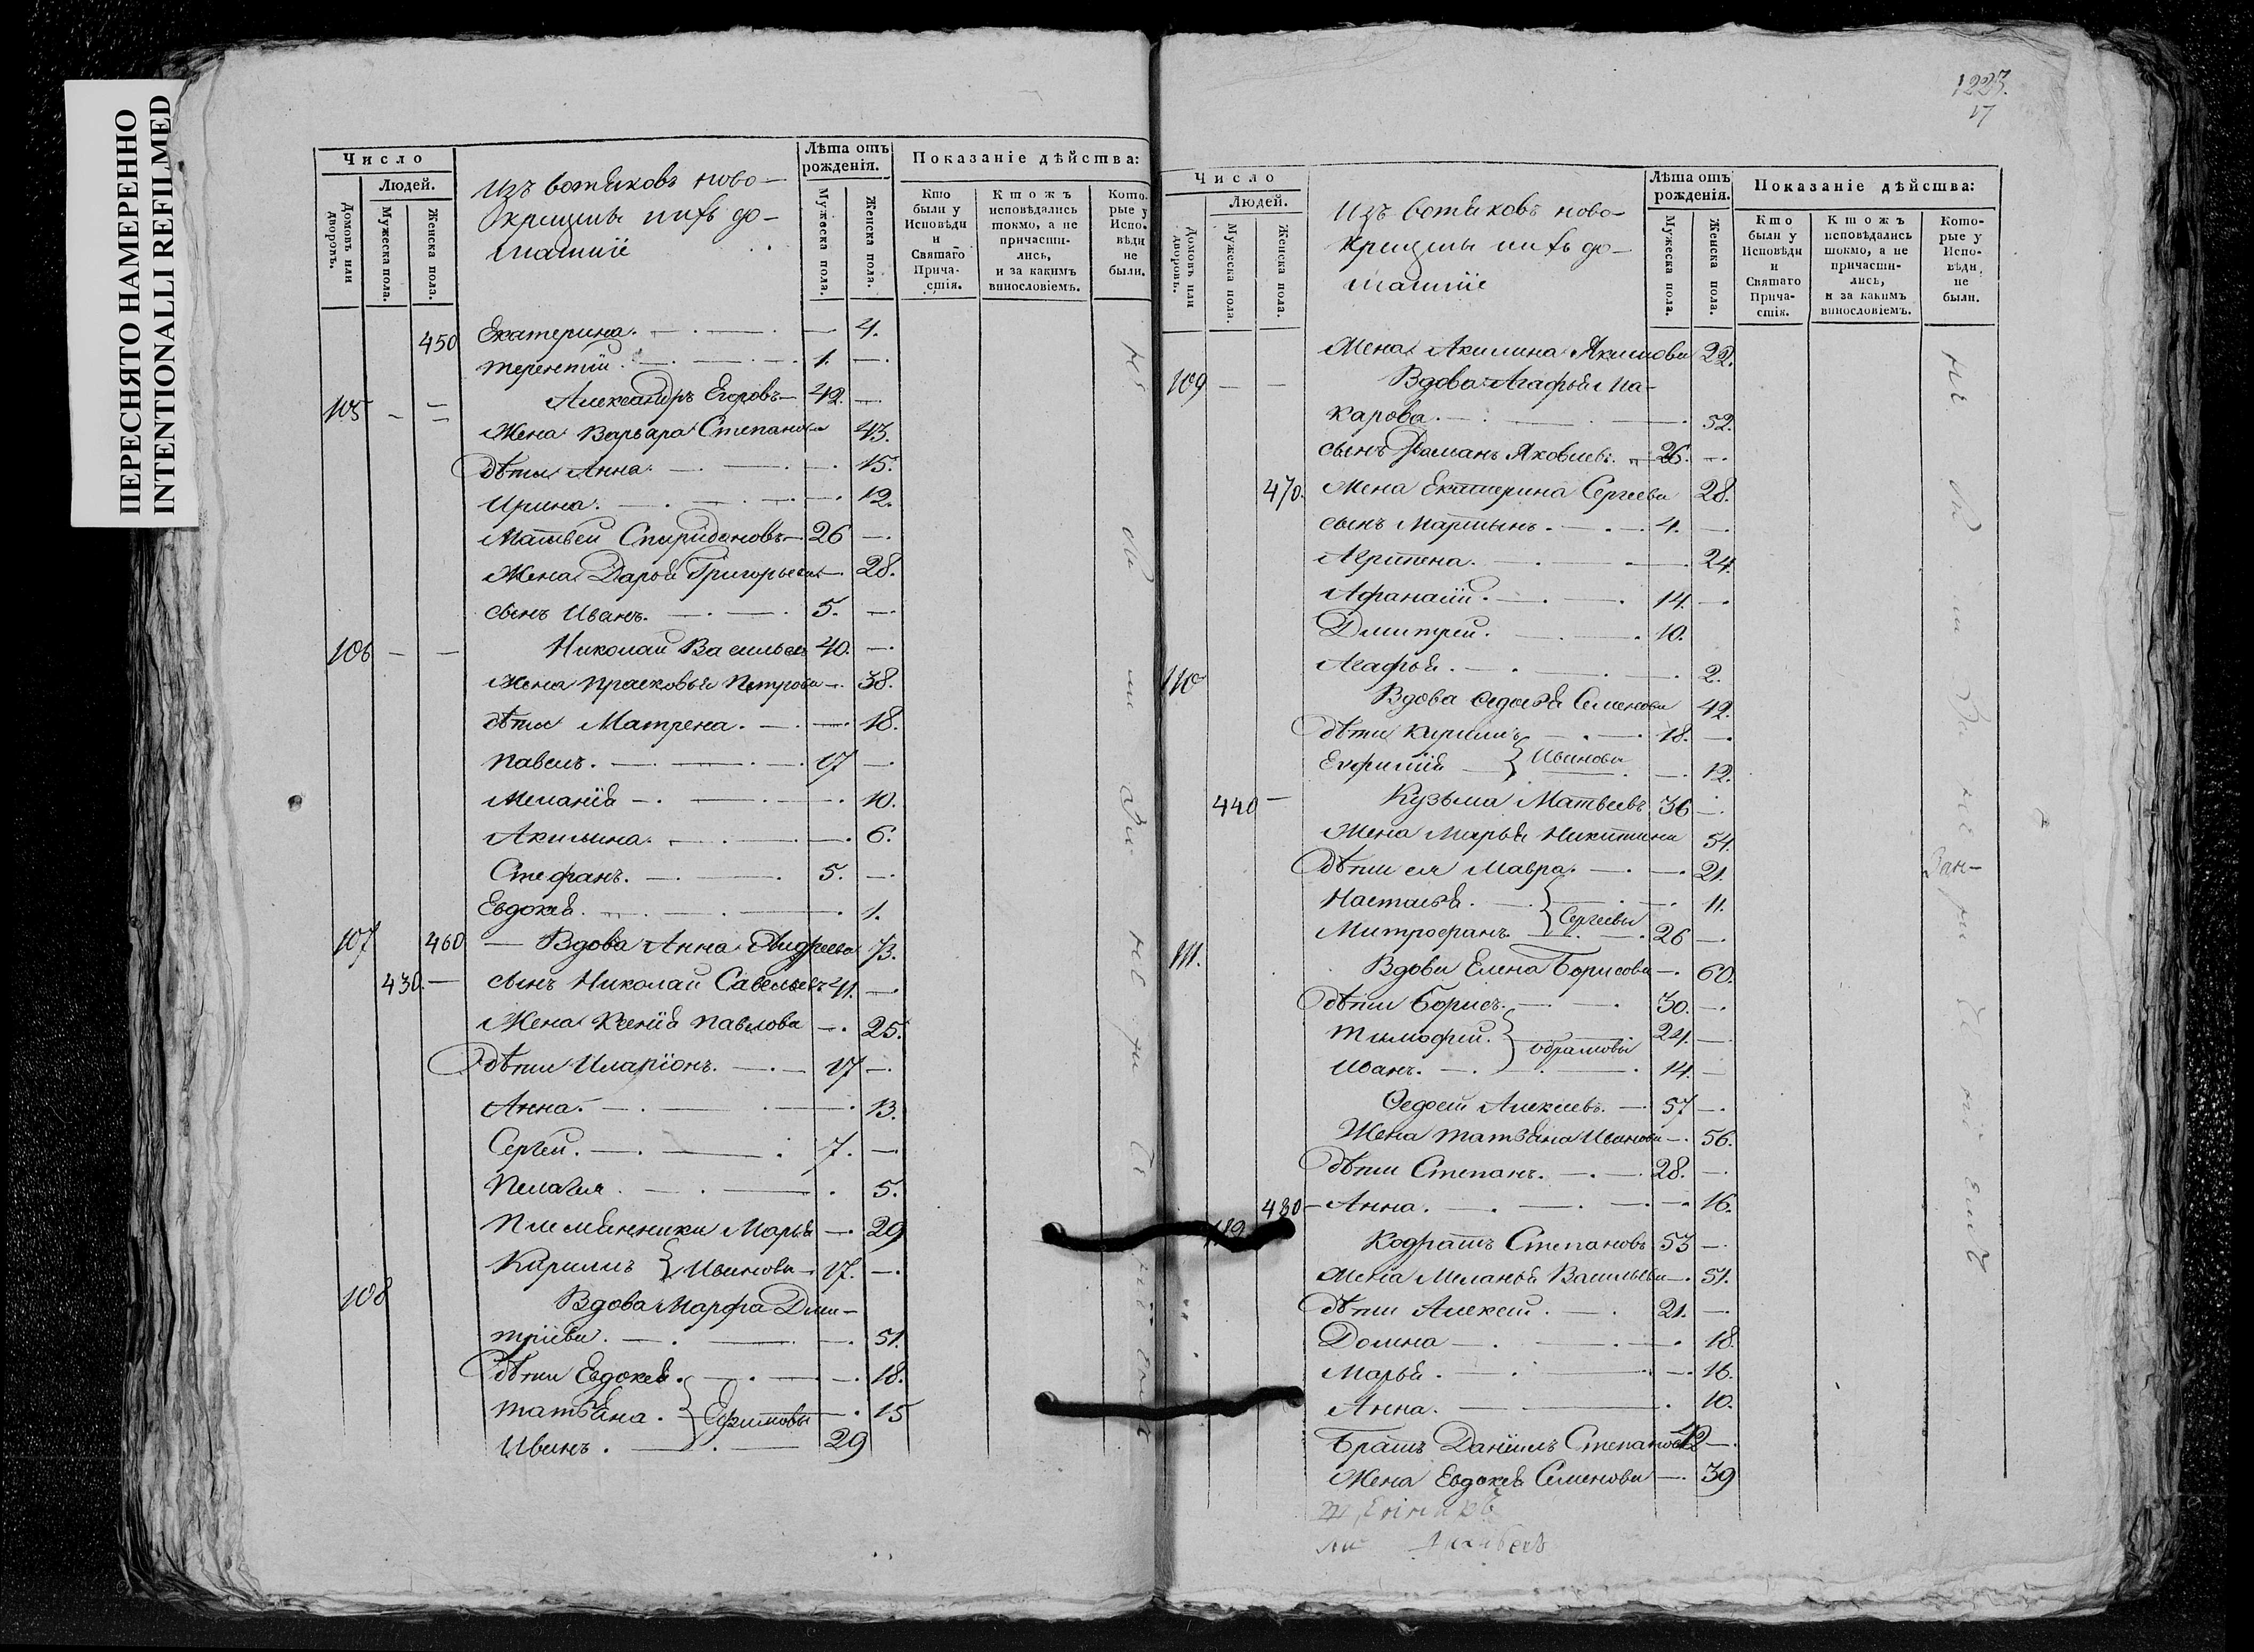 ПЕРЕСНЯТО НАМЕРЕННО
INTENTIONALLI REFILMED
Число
Людей.
Домовъ или дворовъ.
Мужеска пола.
Женска пола.
Изъ вотяковъ ново-
крещены ихъ до-
машнiе
Лѣта отъ рожденiя.
Мужеска пола.
Женска пола.
Показанiе дѣйства:
Кто были у Исповѣди и Святаго Прича-стiя.
Ктожъ исповѣдались токмо, а не причасти-лись, и за какимъ винословiемъ.
Кото-рые у Испо-вѣди не были.
450 Екатерина. 4.
Терентiй. 1.
105 Александръ Егоровъ 42.
Жена Варвара Степанова 43.
Дѣти Анна 15.
Ирина. 12.
Матвей Спиридоновъ 26
Жена Дарья Григорьева 28.
Сынъ Иванъ. 5.
106 Николай Васильевъ 40.
Жена Прасковья Петрова 38.
Дѣти Матрена. 18.
Павелъ. 17
Меланiя 10.
Акилина. 6.
Стефанъ. 5.
Евдокея. 1.
107 460 Вдова Анна Андреева 73.
430. Сынъ Николай Савельевъ 41.
Жена Ксенiя Павлова 25.
Дѣти Иларiонъ. 17
Анна. 13.
Сергей. 7.
Пелагея. 5.
Племянники Марья 29
Кирилъ } Ивановы 17.
108 Вдова Марфа Дми-
трiева. 51.
Дѣти Евдокея. 18.
Татьяна. } Ефимовы 15
Иванъ. 29
1223.
17
Число
Людей.
Домовъ или дворовъ.
Мужеска пола.
Женска пола.
Изъ вотяковъ ново-
крещены ихъ до-
машнiе
Лѣта отъ рожденiя.
Мужеска пола.
Женска пола.
Показанiе дѣйства:
Кто были у Исповѣди и Святаго Прича-стiя.
Ктожъ исповѣдались токмо, а не причасти-лись, и за какимъ винословiемъ.
Кото-рые у Испо-вѣди не были.
Жена Акилина Якимова 22.
109 Вдова Агафья Ма-
карова. 52.
Сынъ Романъ Яковлевъ. 26.
470. Жена Екатерина Сергеева 28.
Сынъ Мартынъ. 4.
Агрипена. 24.
Афанасiй. 14.
Дмитрей. 10.
Агафья. 2.
110 Вдова Федосья Семенова 42.
Дѣти Кирилъ 18.
Евфимiя } Ивановы 12.
440 Кузьма Матвеевъ 36
Жена Марья Никитина 54.
Дѣти ея Мавра. 21.
Настасья. 11.
Митрофанъ } Сергеевы 26
111. Вдова Елена Борисова 60.
Дѣти Борисъ. 30.
Тимофей. 24.
Иванъ. 14.
Федосей Алексеевъ. 57
Жена Татьяна Иванова 56.
Дѣти Степанъ. 28.
480 Анна. 16.
Кодратъ Степановъ 53
Жена Меланья Васильева 51.
Дѣти Алексей. 21.
Домна 18.
Марья. 16.
Анна. 10.
Братъ Данiилъ Степановъ 42
Жена Евдокея Семенова 39